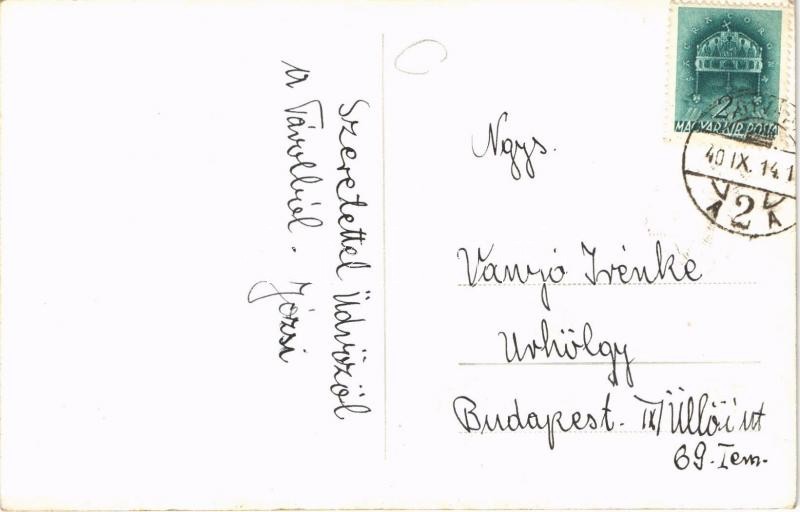 Szeretettel Üdvözöl
a Távolból. Józsi
SACRA CORONA
2
MAGYAR KIR. POSTA
40 IX. 14. 1
2
A A
Ngys.
Vanyó Irénke
Urhölgy
Budapest. IX/Üllői út
69. I em.